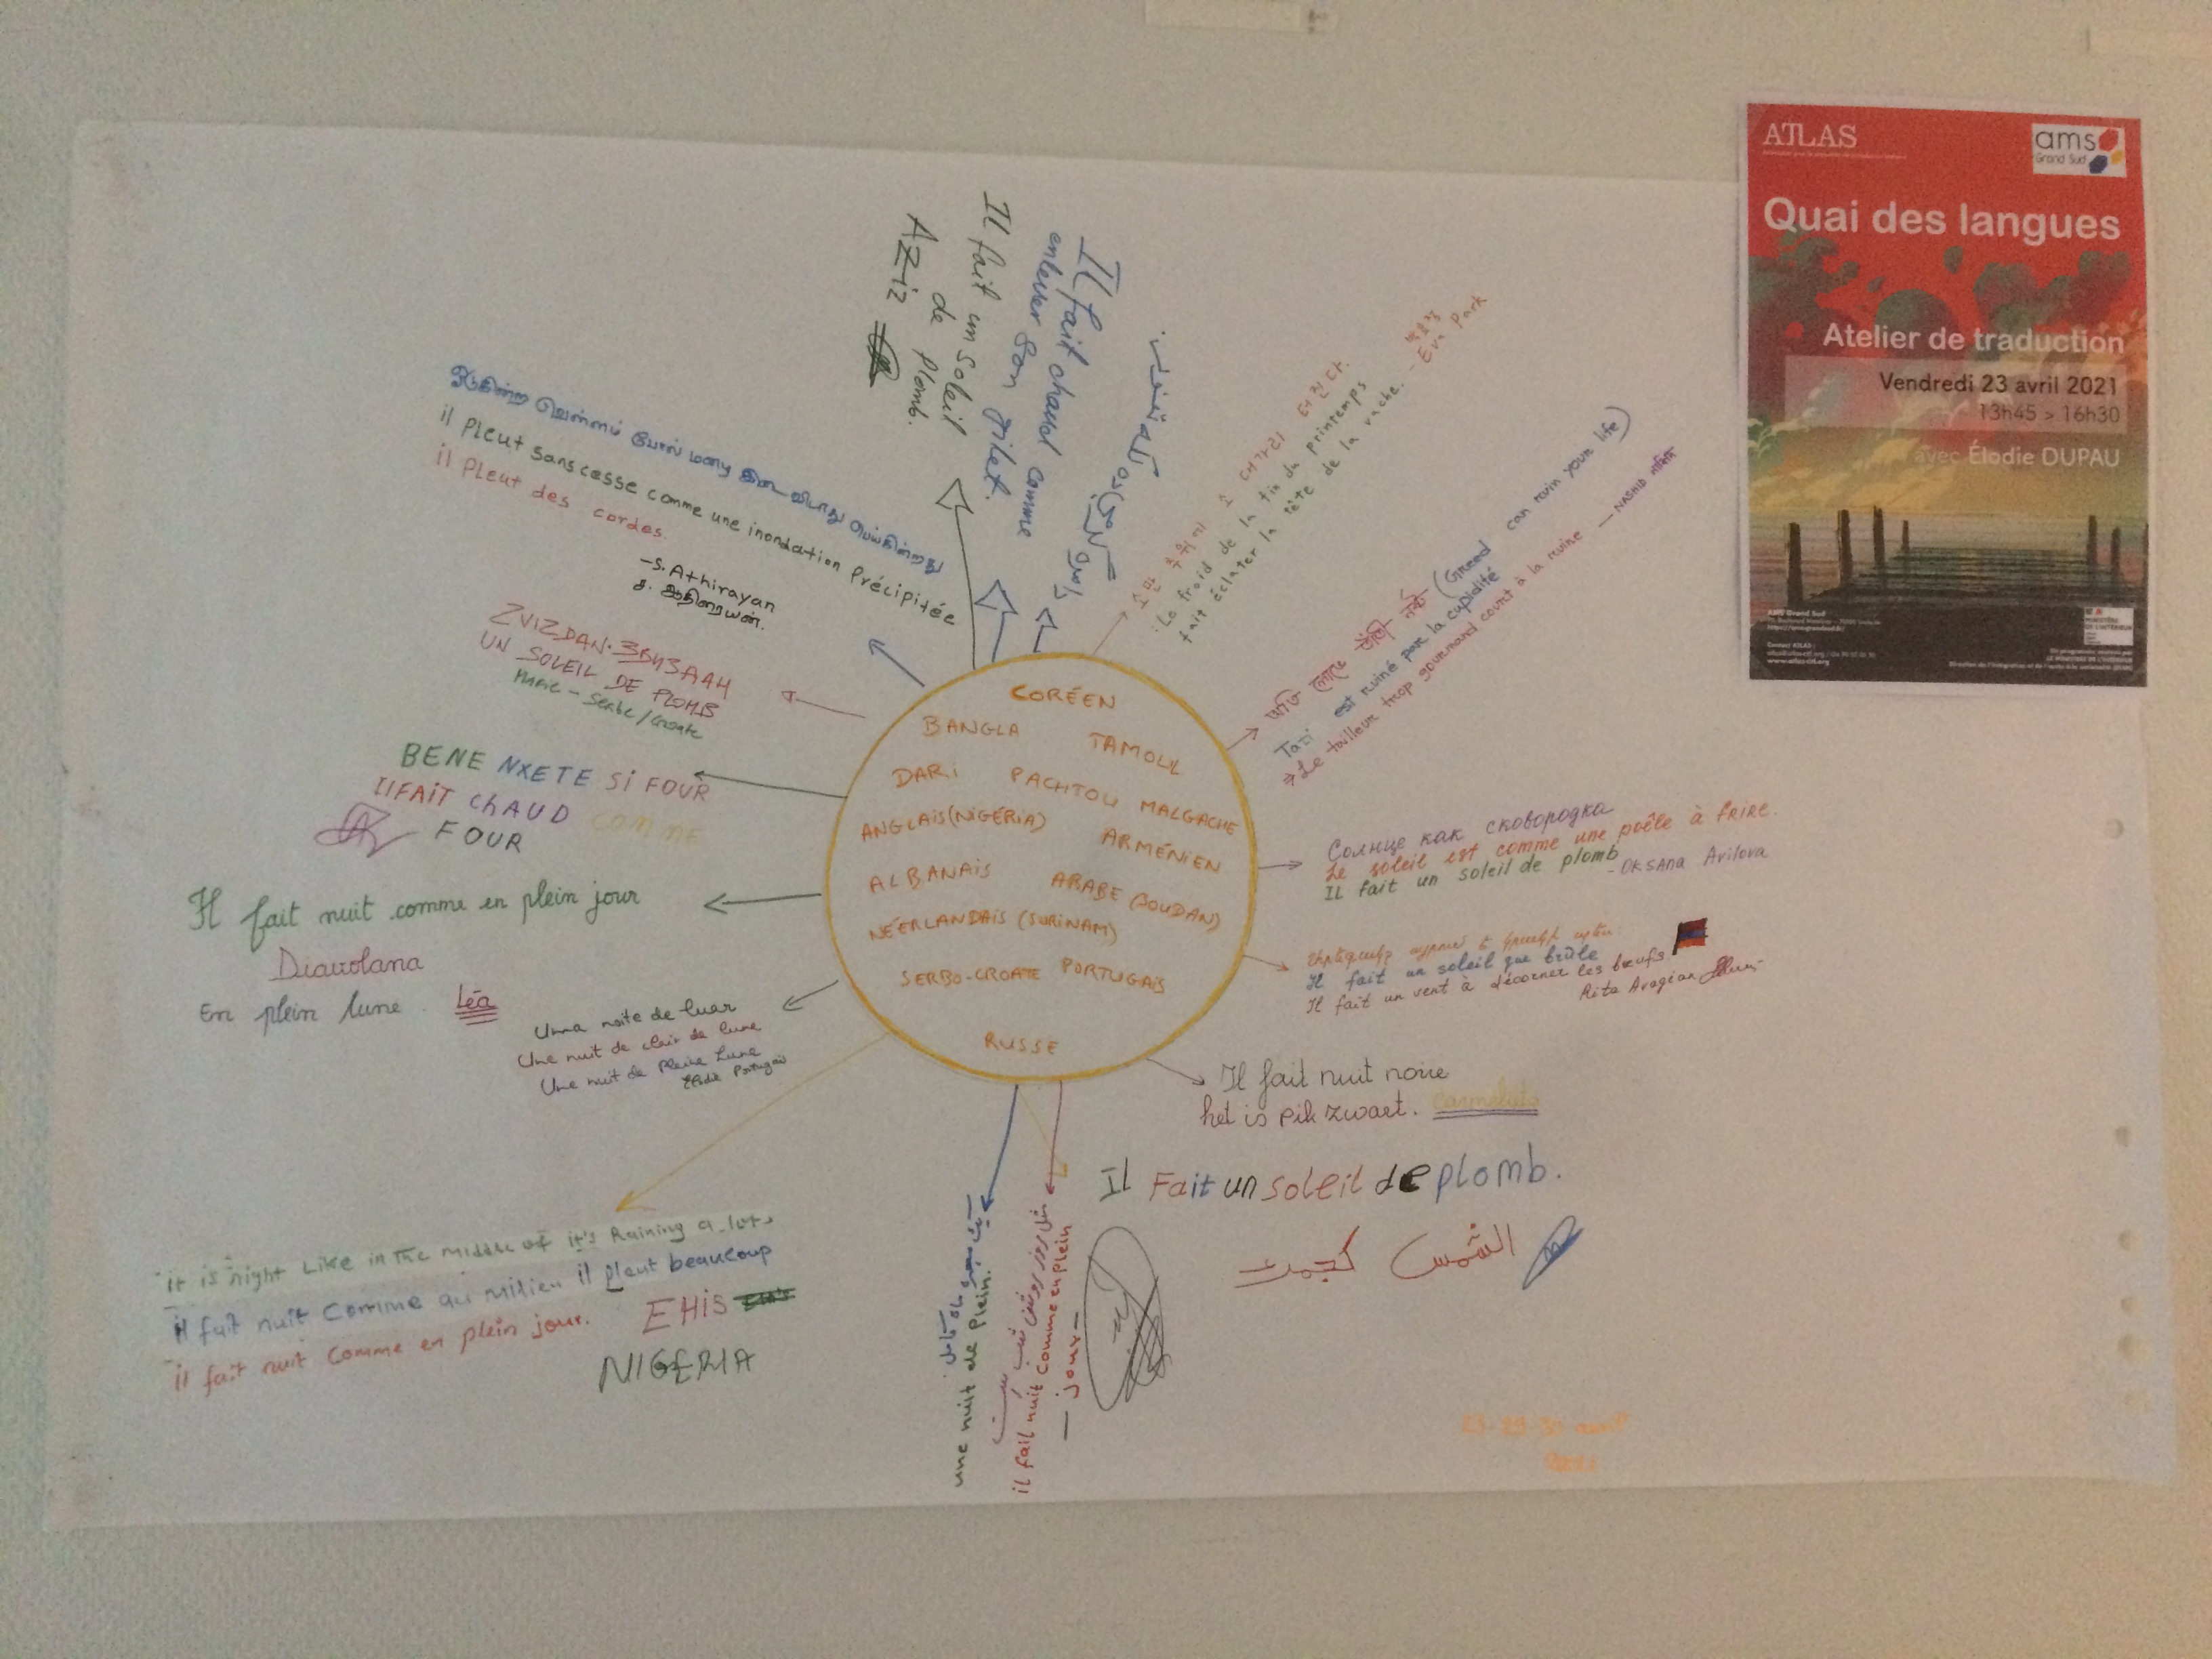 ATLAS
ams
Grand Sud
Quai des langues
Atelier de traduction
Vendredi 23 avril 2021
13h45 > 16h30
avec Élodie DUPAU
AMS Grand Sud
www.atlas-citl.org
MINISTÈRE
DE L'INTÉRIEUR
CORÉEN
BANGLA
TAMOUL
DARI
PACHTOU
MALGACHE
ANGLAIS (NIGÉRIA)
ARMÉNIEN
ALBANAIS
ARABE (SOUDAN)
NÉERLANDAIS (SURINAM)
SERBO-CROATE
PORTUGAIS
RUSSE
Il fait un soleil
de plomb.
AZiz
Il fait chaud comme
enlever son gilet.
소만 추위에 소 대가리 터진다.
: Le froid de la fin du printemps
fait éclater la tête de la vache.
- Eva Park
অতি লোভে তাঁতি নষ্ট (Greed can ruin your life)
Tati est ruiné par la cupidité
⇒ Le tailleur trop gourmand court à la ruine — NASHID
Солнце как сковородка
Le soleil est comme une poêle à frire.
IL fait un soleil de plomb
- Oksana Avilova
Il fait un soleil que brûle
Il fait un vent à décorner les bœufs
Rita Avagian
Il fait nuit noire
het is pik zwart. Carmelita
Il Fait un soleil de plomb.
الشمس كجمرت
il fait nuit comme en plein
— jour —
une nuit de plein.
it is night Like in The middle of it's Raining a lot.
il fait nuit comme au milieu il pleut beaucoup
il fait nuit comme en plein jour.
EHIS
NIGERIA
Uma noite de luar
Une nuit de clair de lune
Une nuit de pleine lune
Elodie Portugais
Il fait nuit comme en plein jour
Diavolana
En plein lune. Léa
BENE NXETE SI FOUR
Il FAIT CHAUD COMME
FOUR
ZVIZDAN.
UN SOLEIL DE PLOMB
Serbe/Croate
il pleut sans cesse comme une inondation précipitée
il pleut des cordes.
-S. Athirayan
ச. ஆதிரையன்.
23-29-30 avril
2021